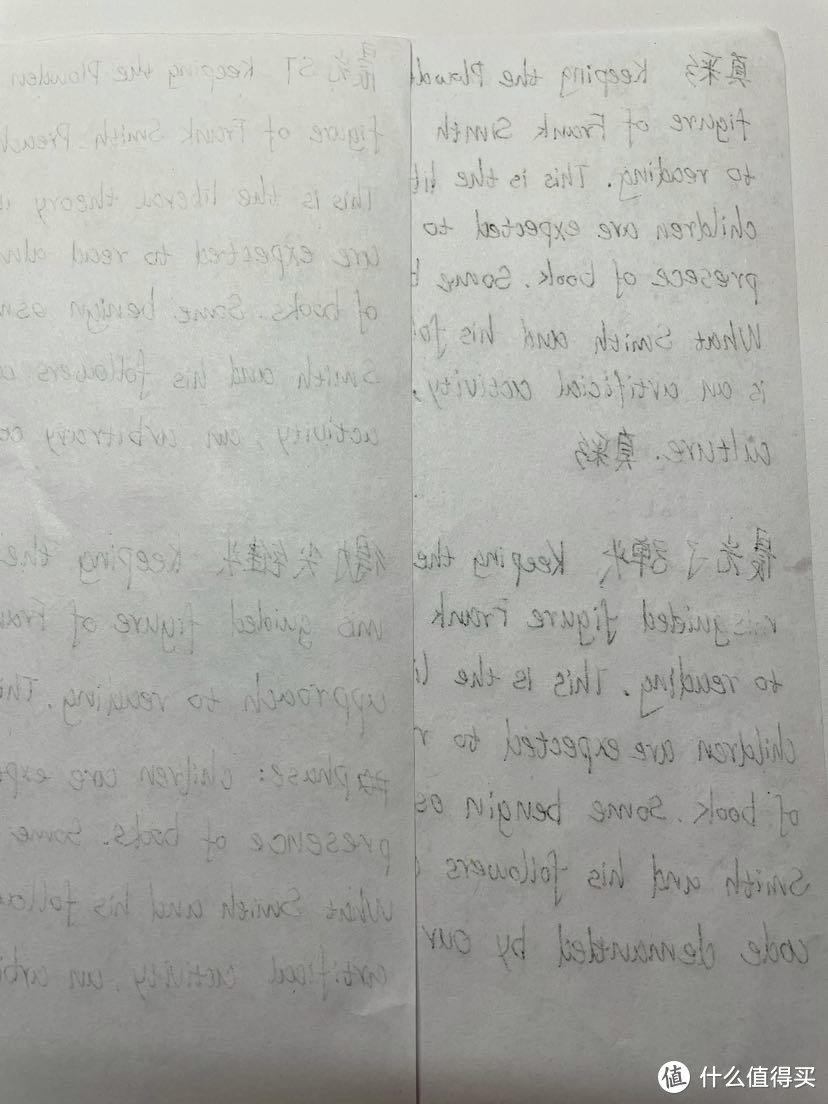 真彩 Keeping the Plowd
figure of Frank Smith
to reading. This is the lit
children are expected to
presece of book. Some
What Smith and his fol
is an artificial activity,
culture. 真彩
晨光子弹头 Keeping the
guided figure Frank
to reading. This is the li
children are expected to r
of book. Some bengin os
Smith and his followers
code demanded by our
晨光 ST Keeping the Plowden
figure of Frank Smith Preach
This is the liberal theory
are expected to read
of books. Some benign osm
Smith and his followers
activity, an arbitrary co
得力尖锥头 Keeping the
mis guided figure of Fran
approach to reading. Thi
phase: children are expe
presence of books. Some
What Smith and his follow
artificial activity, an arbi
值 什么值得买